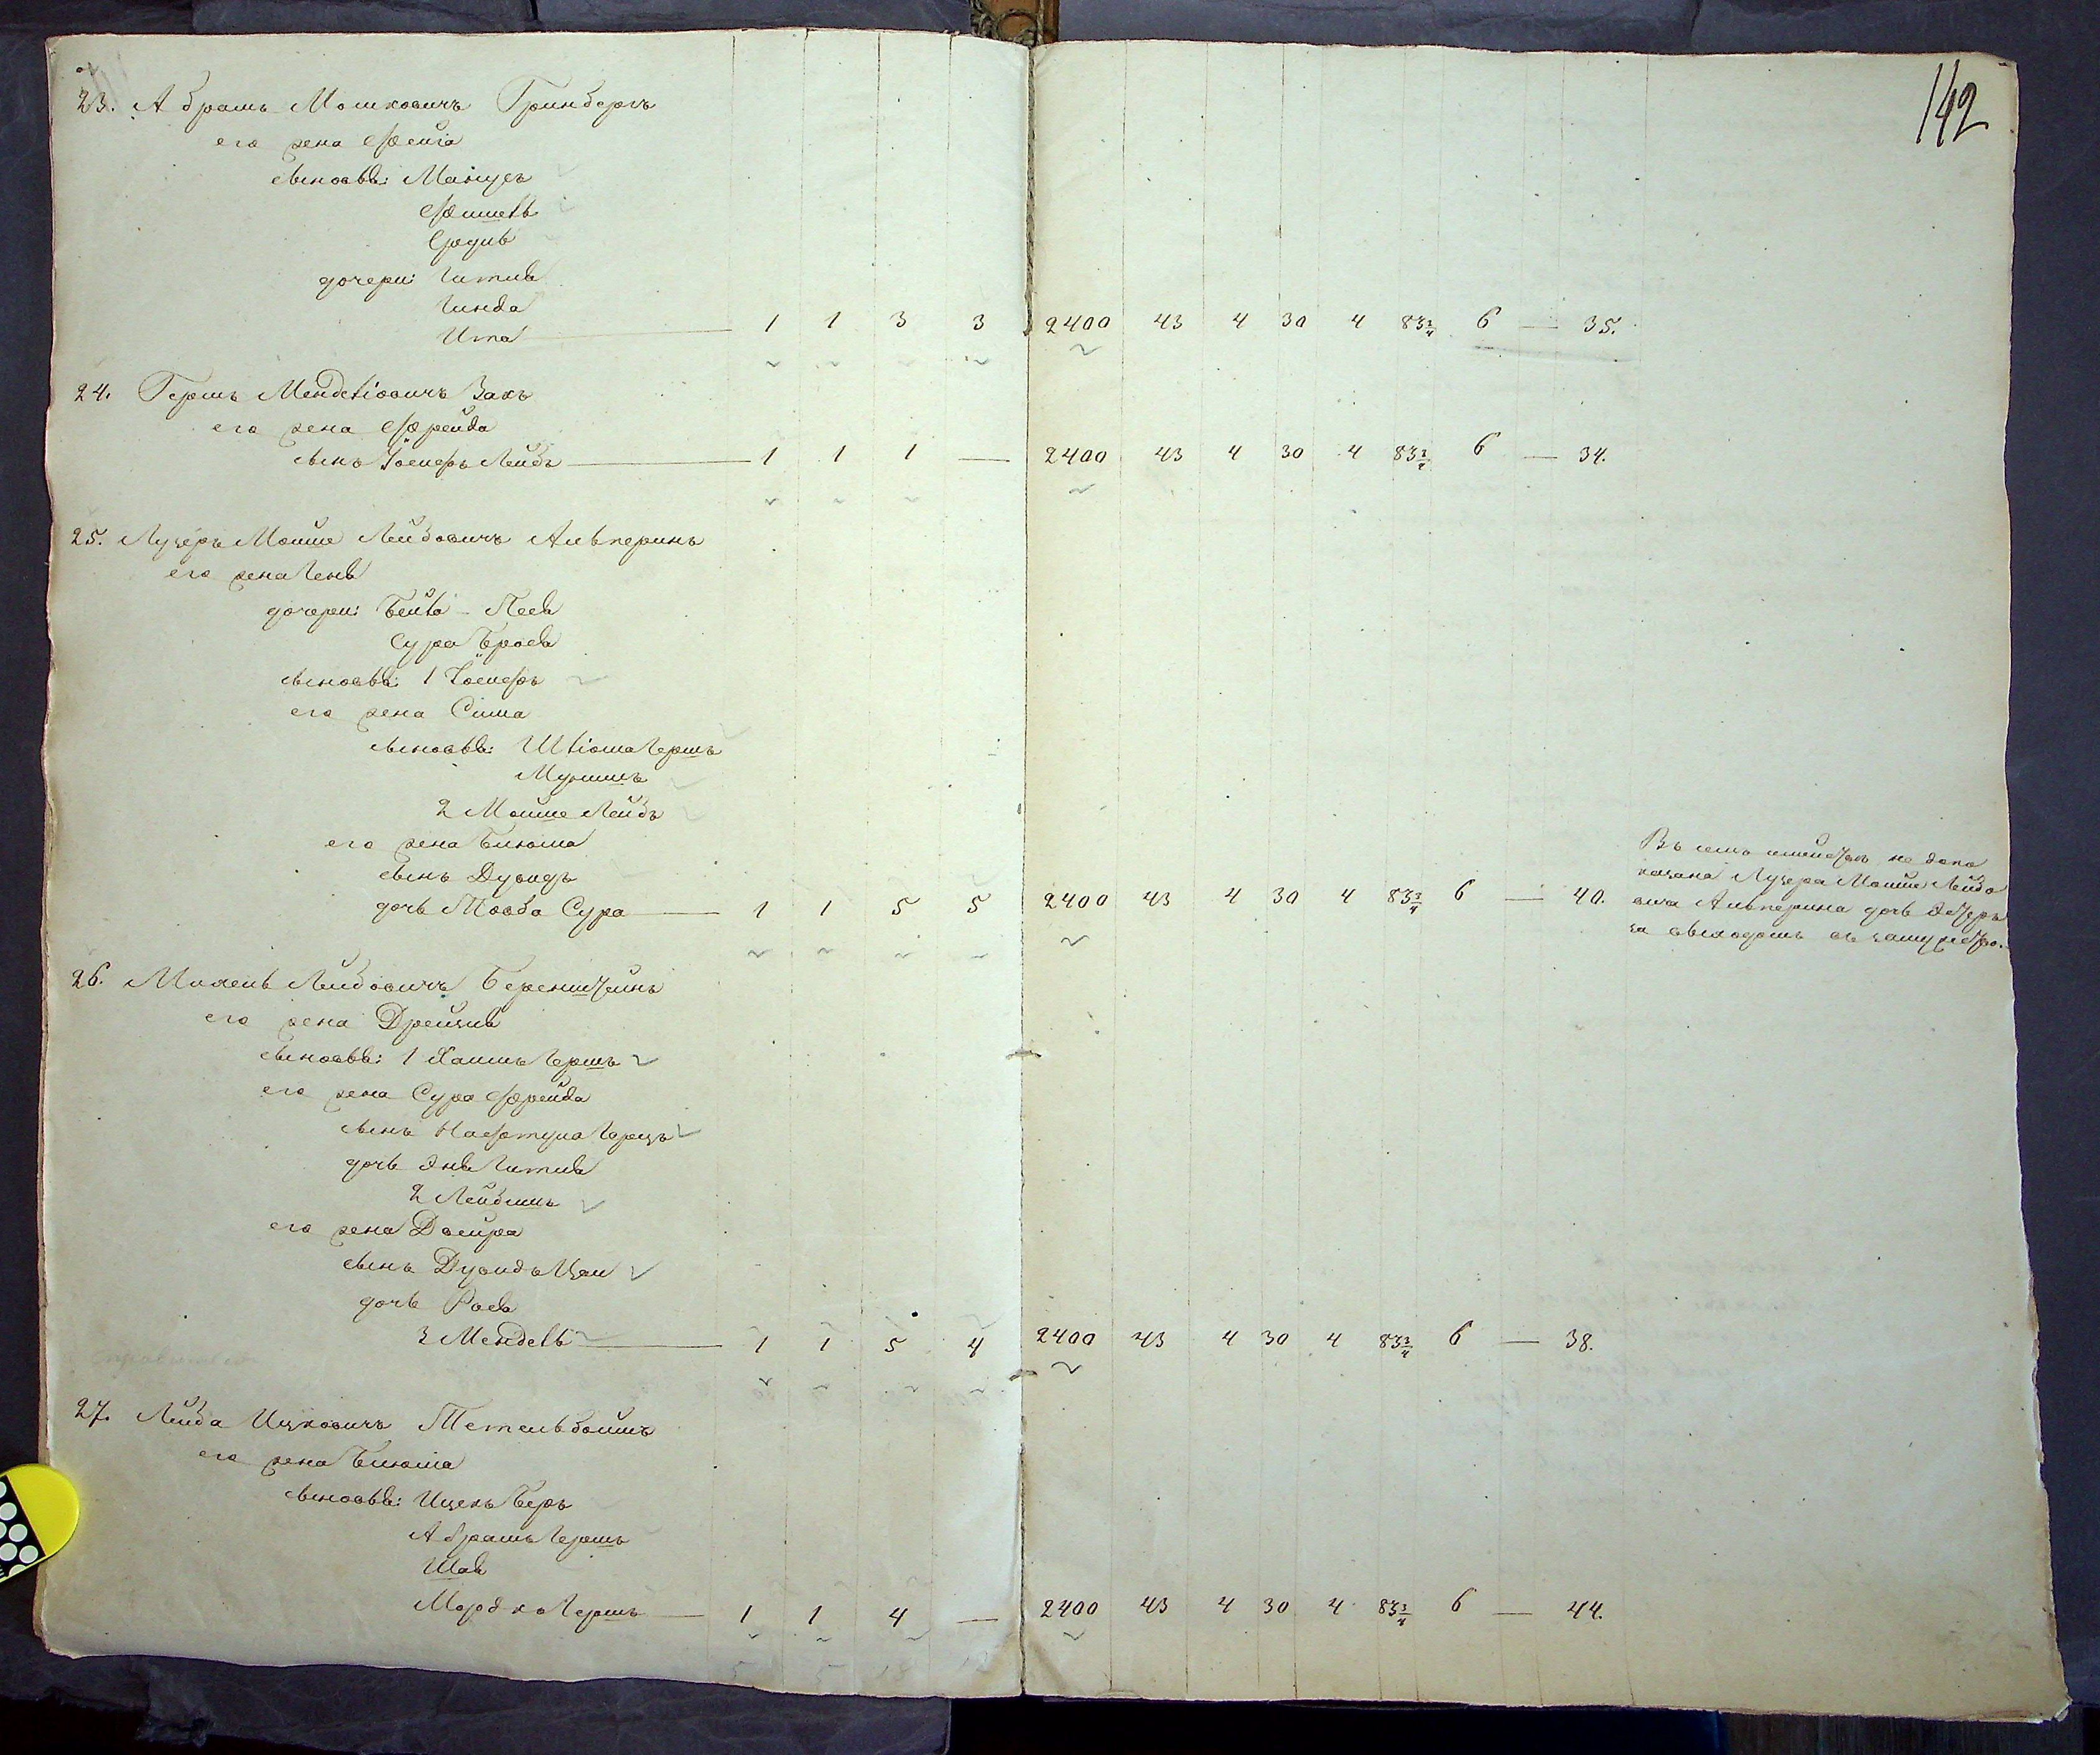 142
23. Абрамъ Мошковичъ Гринбергъ
его жена Фейга
сыновья: Манусъ
Фишель
Сродив
дочери: Гитля
Гинда
Ита — 1 1 3 3 2400 43 4 30 4 83¾ 6 — 35.
24. Гершъ Мендelіовичъ Закъ
его жена Фрейда
сынъ Іосифъ Лейбъ — 1 1 1 — 2400 43 4 30 4 83¾ 6 — 34.
25. Лузеръ Мойше Лейбовичъ Альперинъ
его жена Геня
дочери: Бейла Песя
Сура Брося
сыновья: 1 Іосифъ
его жена Сима
сыновья: Шліома Гершъ
2 Мойше Лейбъ
его жена Блюма
сынъ Дувидъ
дочь Товба Сура — 1 1 5 5 2400 43 4 30 4 83¾ 6 — 40.
Въ семъ не дока
казана Лузера Мойше Лейбо
вича Альперина дочь Эстеръ
за выходомъ въ замужество.
26. Михель Лейбовичъ Беренштейнъ
его жена Дрейзля
сыновья: 1 Хаимъ Гершъ
его жена Сура Фрейда
сынъ Нафтула Герцъ
дочь Эня Гитля
2 Лейбишъ
его жена Двейра
сынъ Дувидъ
дочь Рося
3 Мендель — 1 1 5 4 2400 43 4 30 4 83¾ 6 — 38.
27. Лейба Ицковичъ Тетельбоймъ
его жена Блюма
сыновья: Ицекъ Беръ
Абрамъ Гершъ
Шая
Мордко Гершъ — 1 1 4 — 2400 43 4 30 4 83¾ 6 — 44.